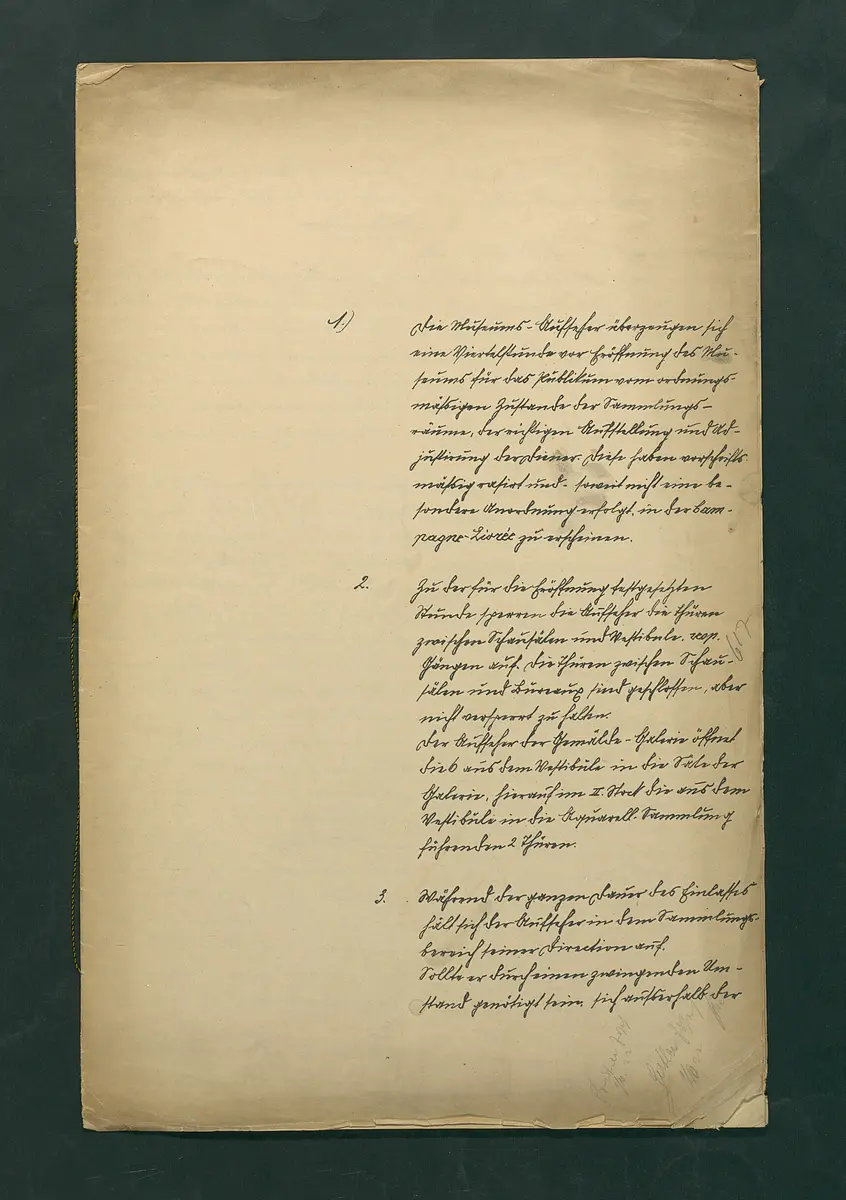 1.)
Die Museums-Aufseher überzeugen sich
eine Viertelstunde vor Eröffnung des Mu-
seums für das Publikum vom ordnungs-
mäßigen Zustande der Sammlungs-
räume, der richtigen Aufstellung und Ad-
justirung der Diener. Diese haben vorschrifts
mäßig rasirt und - soweit nicht eine be-
sondere Anordnung erfolgt, in der Cam-
pagne-Livrée zu erscheinen.
2.
Zu der für die Eröffnung festgesetzten
Stunde sperren die Aufseher die Thüren
zwischen Schausälen und Vestibule, resp.
Gängen auf. Die Thüren zwischen Schau-
sälen und Bureaux sind geschlossen, aber
nicht versperrt zu halten.
Der Aufseher der Gemälde-Galerie öffnet
die 6 aus dem Vestibule in die Säle der
Galerie, hierauf im II. Stock die aus dem
Vestibule in die Aquarell-Sammlung
führenden 2 Thüren.
3.
Während der ganzen Dauer des Einlasses
hält sich der Aufseher in dem Sammlungs-
bereich seiner Direction auf.
Sollte er durch einen zwingenden Um-
stand genötigt sein, sich außerhalb der